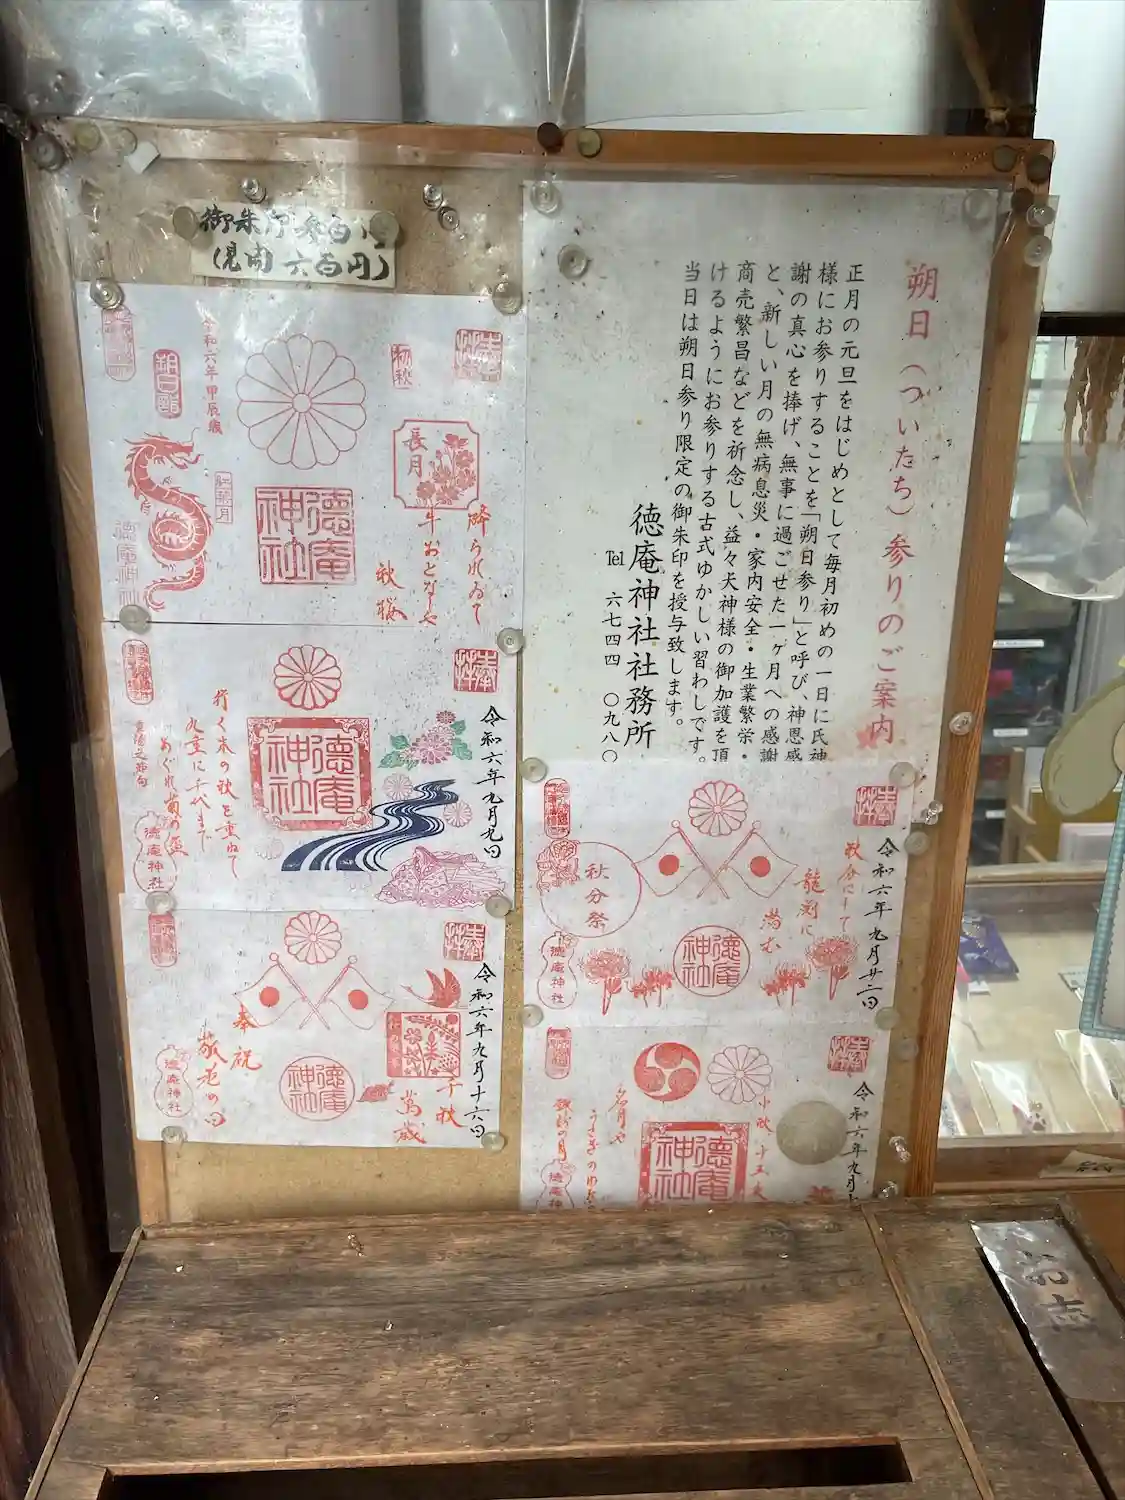 朔日(ついたち)参りのご案内
正月の元旦をはじめとして毎月初めの一日に氏神
様にお参りすることを「朔日参り」と呼び、神恩感
謝の真心を捧げ、無事に過ごせた一ヶ月への感謝
と、新しい月の無病息災・家内安全・生業繁栄・
商売繁昌などを祈念し、益々天神様の御加護を頂
けるようにお参りする古式ゆかしい習わしです。
当日は朔日参り限定の御朱印を授与致します。
徳庵神社社務所
℡ 六七四四 〇九八〇
御朱印参百円
(見開 六百円)
奉拝
初秋
長月
降られゐて
牛おとなしや
秋桜
徳庵
神社
令和六年甲辰歳
紅葉月
朔日詣
徳庵神社
奉拝
令和六年九月九日
徳庵
神社
行く末の秋を重ねて
九重に千代まで
めぐれ菊の盃
重陽之節句
徳庵神社
奉拝
令和六年九月十六日
千秋
萬歳
徳庵
神社
奉祝
敬老の日
徳庵神社
奉拝
令和六年九月廿二日
秋分にして
龍淵に
潜む
徳庵
神社
秋分祭
徳庵神社
奉拝
令和六年九月
小秋十五夜
徳庵
神社
名月や
うさぎの
徳庵神